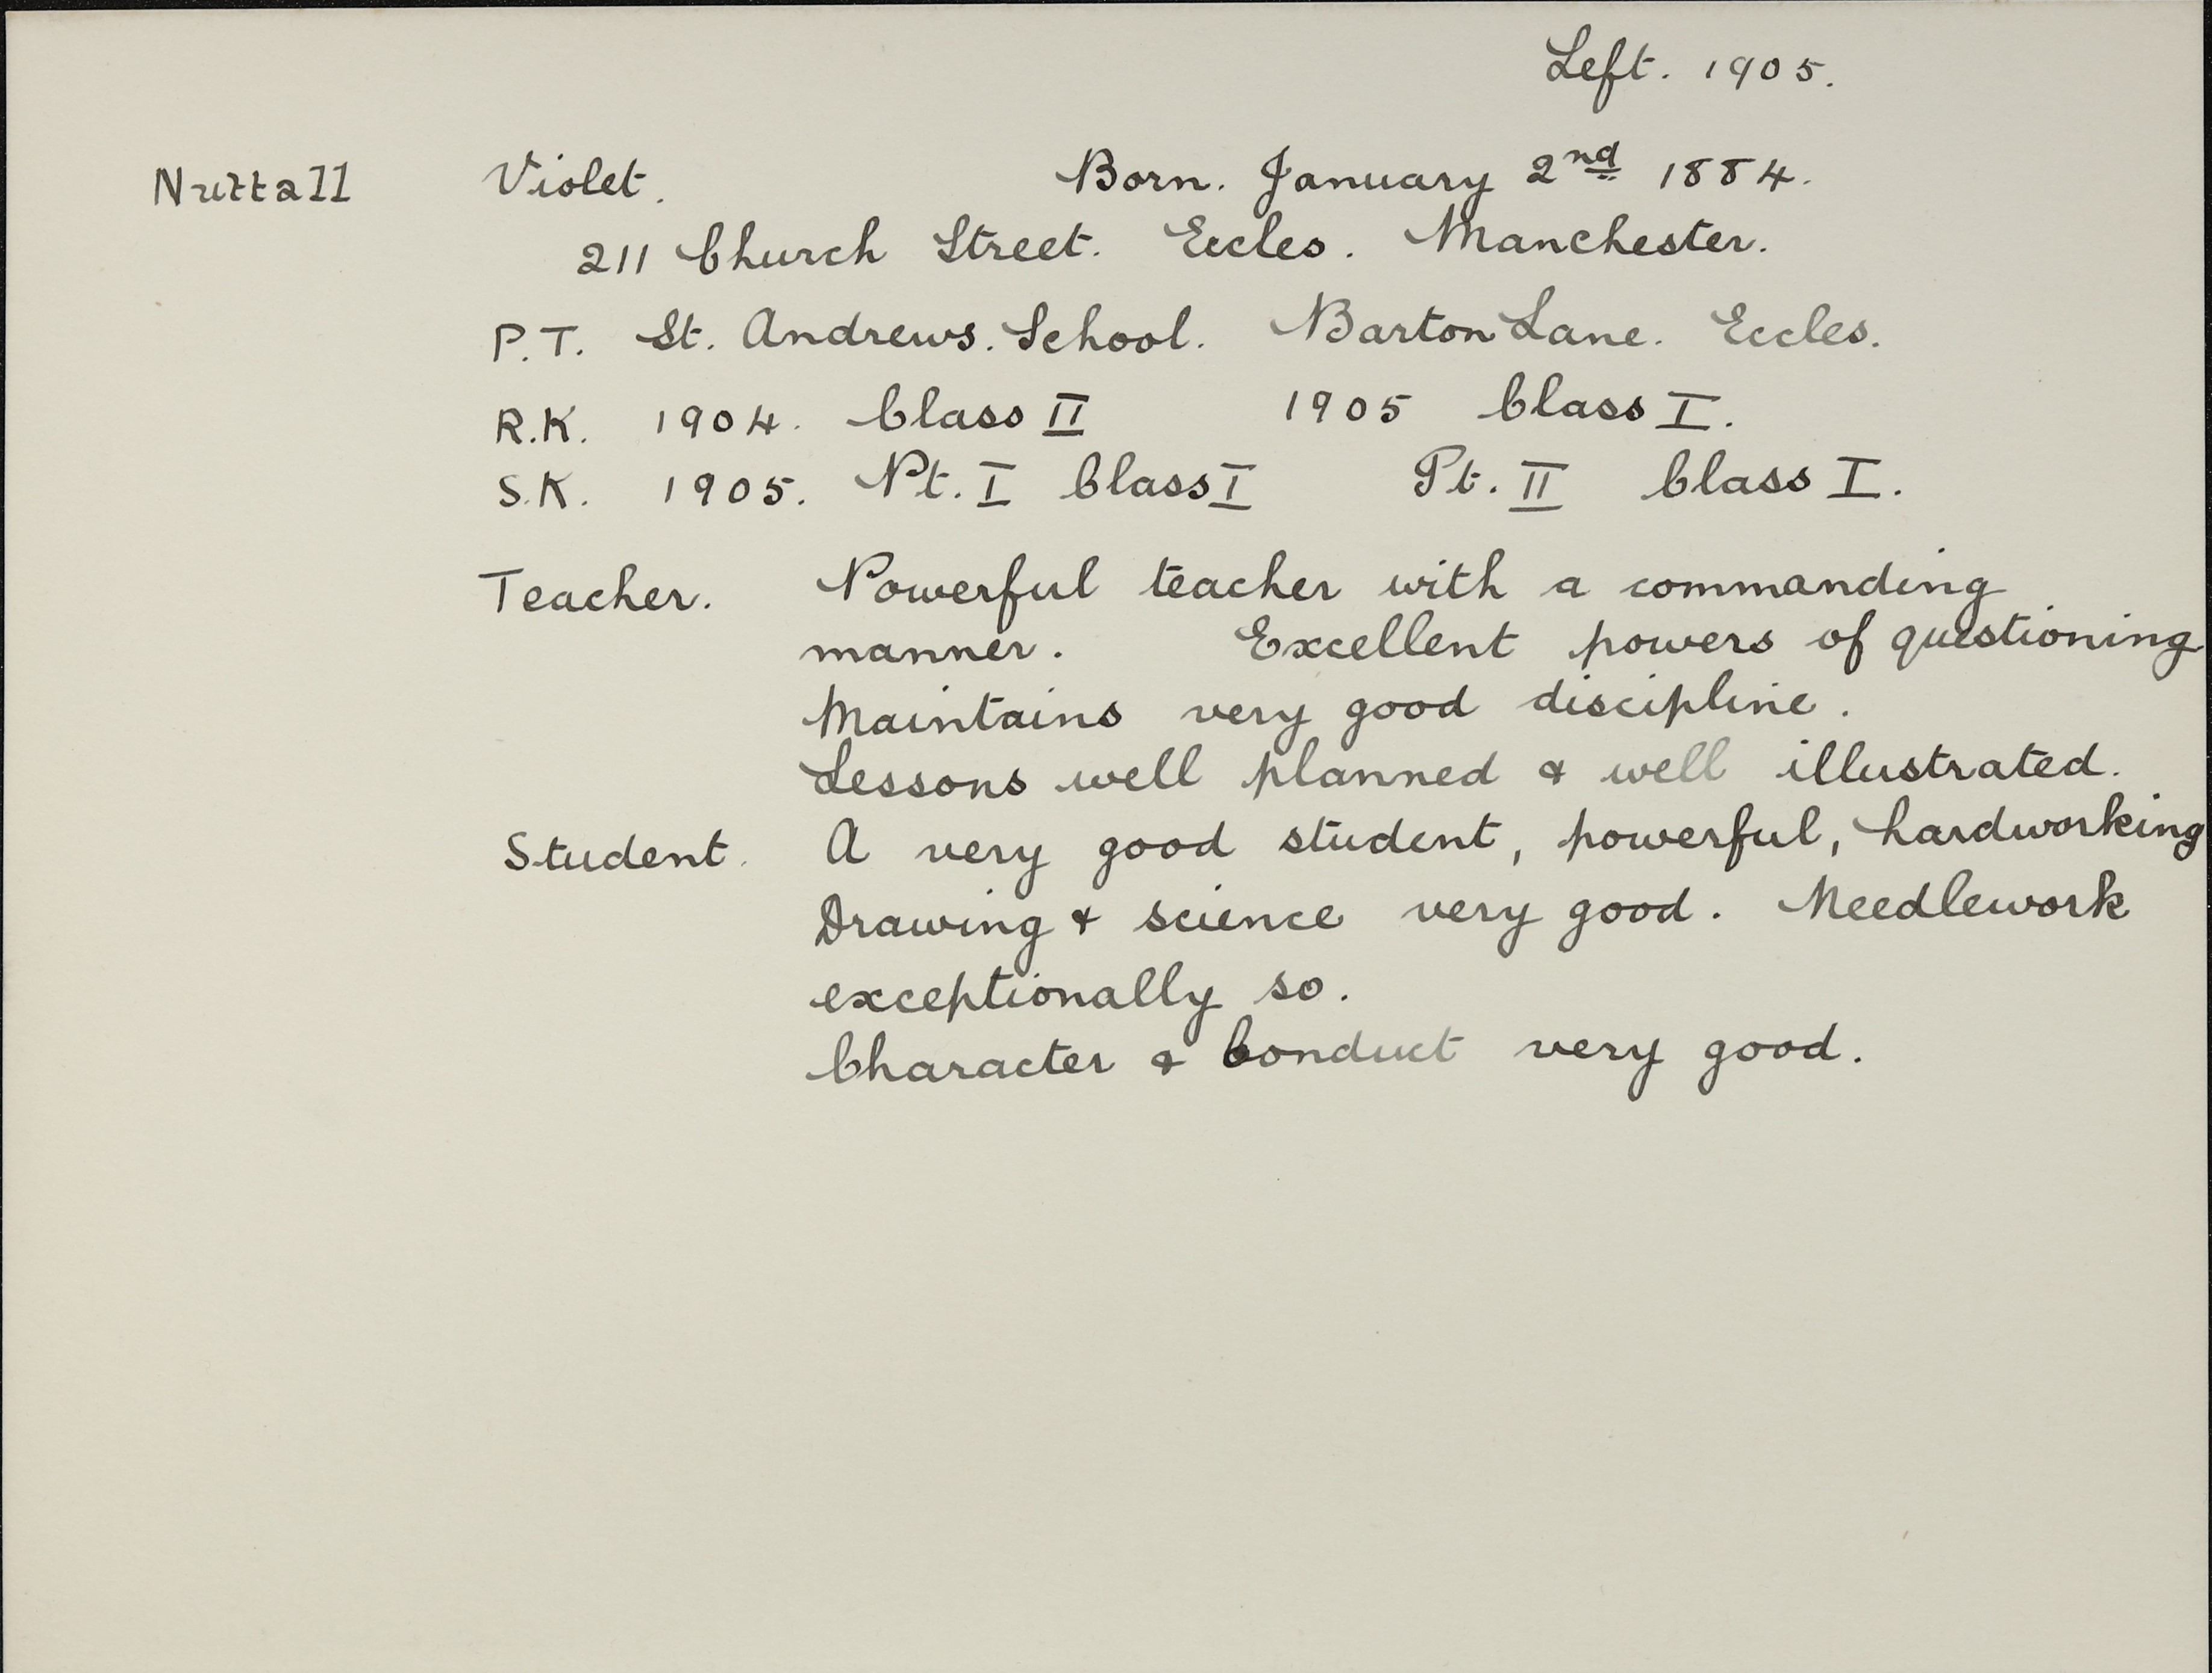 Left. 1905.
Nuttall Violet. Born. January 2nd 1884.
211 Church Street. Eccles. Manchester.
P.T. St. Andrews. School. Barton Lane. Eccles.
R.K. 1904. Class II 1905 Class I.
S.K. 1905. Pt. I Class I Pt. II Class I.
Teacher. Powerful teacher with a commanding
manner. Excellent powers of questioning
Maintains very good discipline.
Lessons well planned & well illustrated.
Student. A very good student, powerful, hardworking
Drawing & science very good. Needlework
exceptionally so.
Character & Conduct very good.